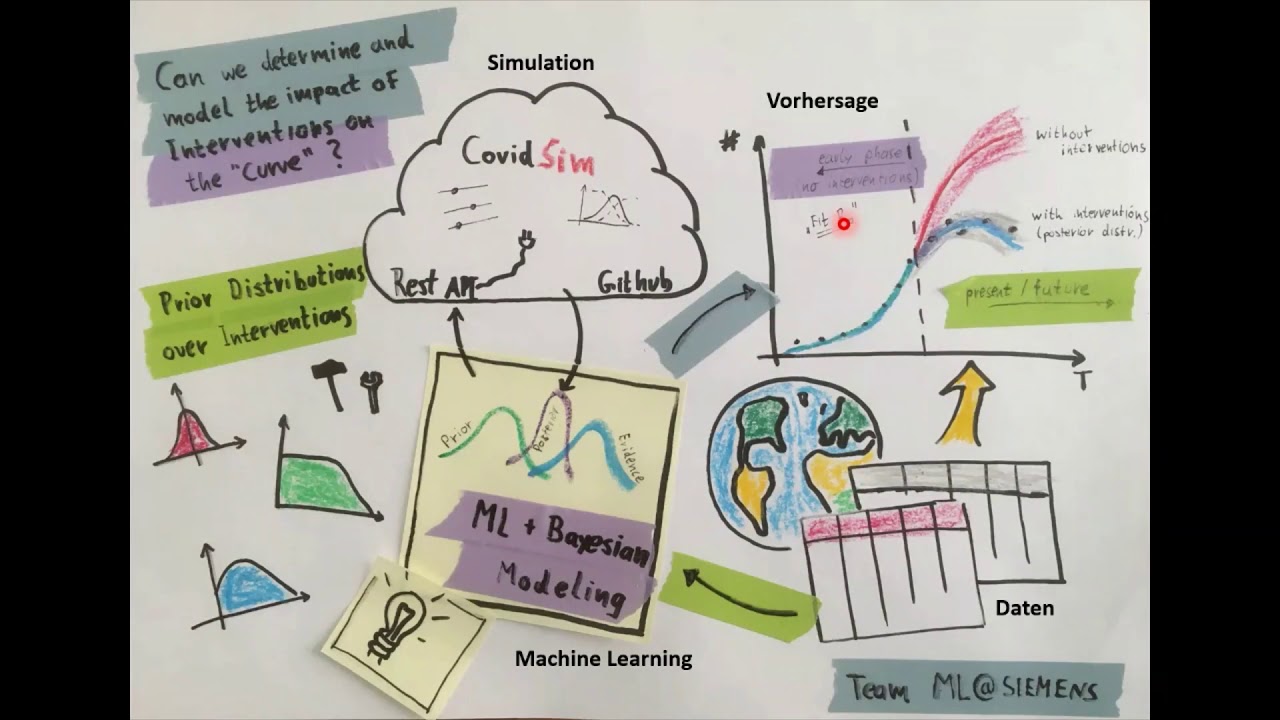 Can we determine and
model the impact of
Interventions on
the "Curve" ?
Simulation
CovidSim
Rest API
Github
Vorhersage
#
early phase
(no interventions)
"Fit"
without
interventions
with interventions
(posterior distr.)
present / future
T
Prior Distributions
over Interventions
Prior
Posterior
Evidence
ML + Bayesian
Modeling
Machine Learning
Daten
Team ML@SIEMENS